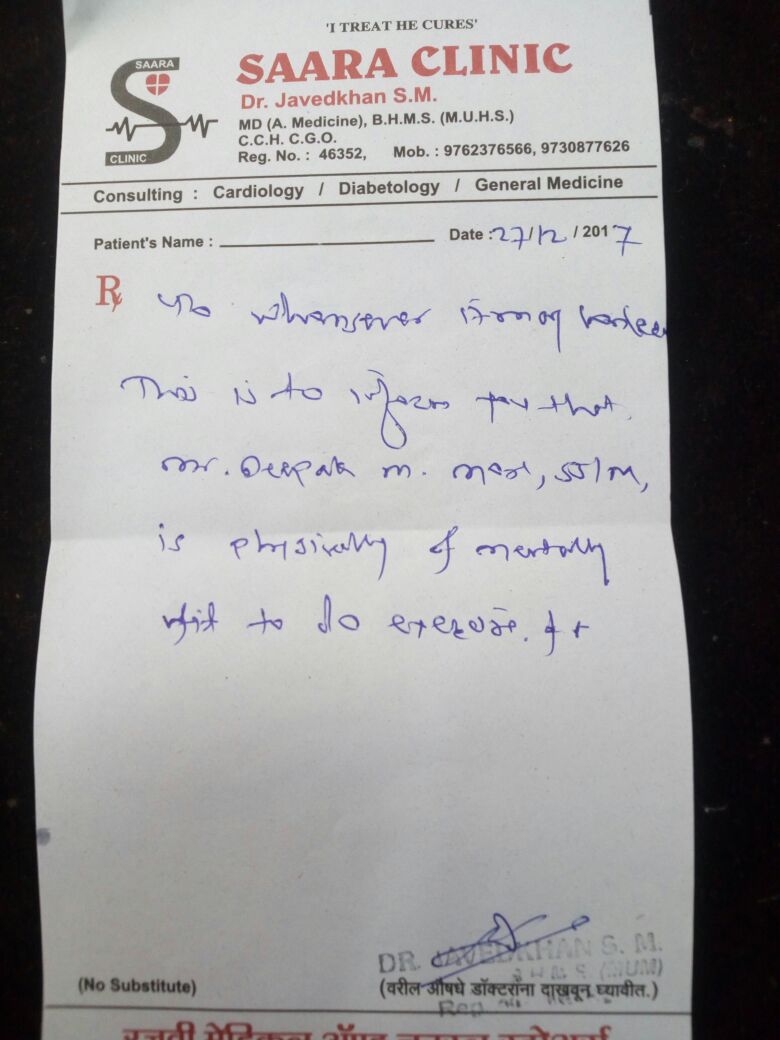 'I TREAT HE CURES'
SAARA
CLINIC
SAARA CLINIC
Dr. Javedkhan S.M.
MD (A. Medicine), B.H.M.S. (M.U.H.S.)
C.C.H. C.G.O.
Reg. No. : 46352, Mob. : 9762376566, 9730877626
Consulting : Cardiology / Diabetology / General Medicine
Patient's Name : Date : 27/12 / 2017
To whomsoever it may
This is to inform you that
Mr. Deepak M. 55/M,
is physically & mentally
to do exercise.
DR. JAVEDKHAN S. M.
(No Substitute) (वरील औषधे डॉक्टरांना दाखवून घ्यावीत.)